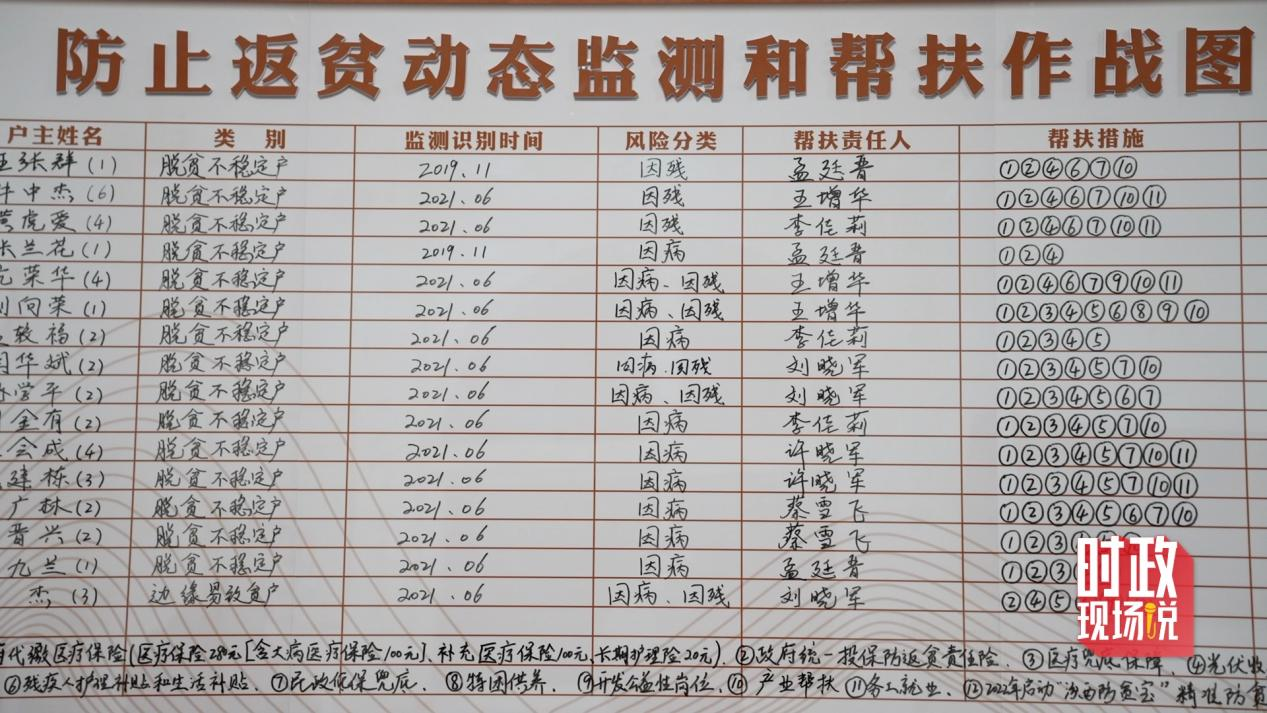 防止返贫动态监测和帮扶作战图
户主姓名 类别 监测识别时间 风险分类 帮扶责任人 帮扶措施
张群(1) 脱贫不稳定户 2019.11 因残 孟廷晋 ①②④⑥⑦⑩
牛中杰(6) 脱贫不稳定户 2021.06 因残 王增华 ①②④⑥⑦⑩⑪
虎爱(4) 脱贫不稳定户 2021.06 因残 李佳莉 ①②④⑥⑦⑩⑪
张兰花(1) 脱贫不稳定户 2019.11 因病 孟廷晋 ①②④
荣华(4) 脱贫不稳定户 2021.06 因病、因残 王增华 ①②④⑥⑦⑨⑩⑪
刘向荣(1) 脱贫不稳定户 2021.06 因病、因残 王增华 ①②③④⑤⑥⑧⑨⑩
福(2) 脱贫不稳定户 2021.06 因病 李佳莉 ①②③④⑤
华斌(2) 脱贫不稳定户 2021.06 因病、因残 刘晓军 ①②③④⑤⑦⑩
学平(2) 脱贫不稳定户 2021.06 因病、因残 刘晓军 ①②③④⑤⑥⑦
金有(2) 脱贫不稳定户 2021.06 因病 李佳莉 ①②③④⑤⑦⑩
会成(4) 脱贫不稳定户 2021.06 因病 许晓军 ①②③④⑤⑦⑩⑪
建栋(3) 脱贫不稳定户 2021.06 因病 许晓军 ①②③④⑤⑦⑩⑪
广林(2) 脱贫不稳定户 2021.06 因病 蔡雪飞 ①②③④⑤⑥⑦⑩
晋兴(2) 脱贫不稳定户 2021.06 因病 蔡雪飞 ①②③
九兰(1) 脱贫不稳定户 2021.06 因病 孟廷晋 ①②③
杰(3) 边缘易致贫户 2021.06 因病、因残 刘晓军 ②④⑤
时政
现场说
代缴医疗保险(医疗保险280元[含大病医疗保险100元]、补充医疗保险100元、长期护理险20元)、②政府统一投保防返贫责任险、③医疗兜底保障、④光伏收
⑥残疾人护理补贴和生活补贴、⑦民政低保兜底、⑧特困供养、⑨开发公益性岗位、⑩产业帮扶 ⑪务工就业、⑫2022年启动“汾西防贫宝”精准防贫